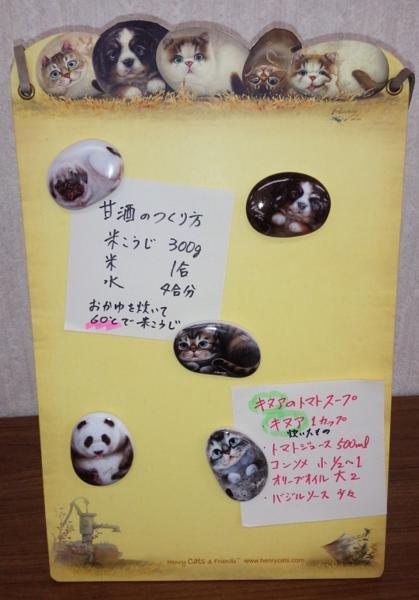 甘酒のつくり方
米こうじ 300g
米 1合
水 4合分
おかゆを炊いて
60℃で米こうじ
キヌアのトマトスープ
・キヌア 1カップ
炊いたもの
・トマトジュース 500ml
コンソメ 小1/2〜1
オリーブオイル 大2
・バジルソース 少々
Henry Cats & Friends™ www.henrycats.com